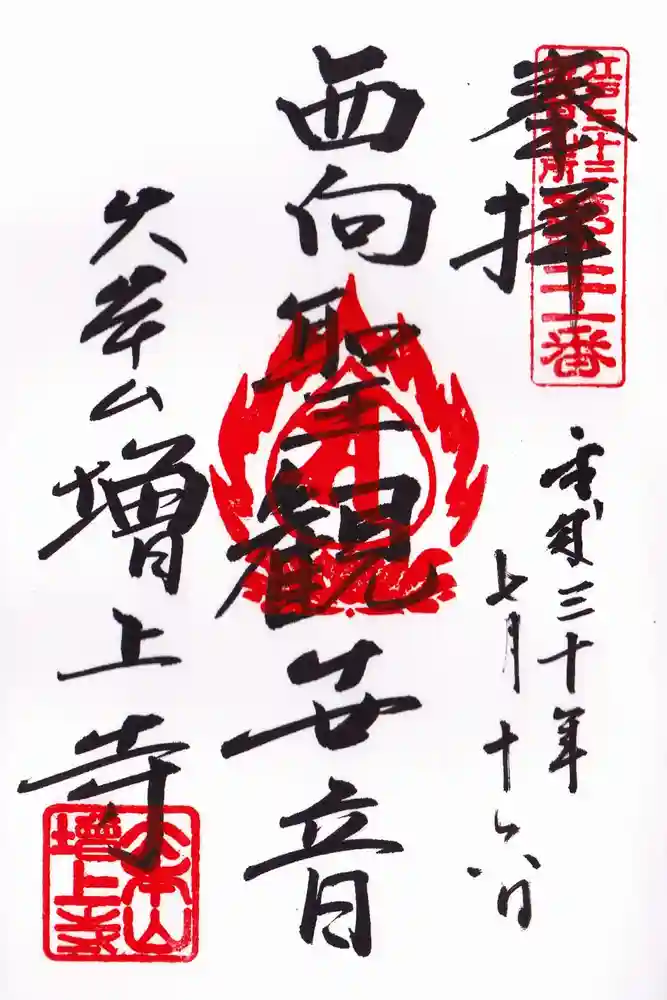 奉拝
江戸三十三
観音札所
第二十一番
平成三十年
七月十六日
西向聖観世音
大本山増上寺
大本山
增上寺